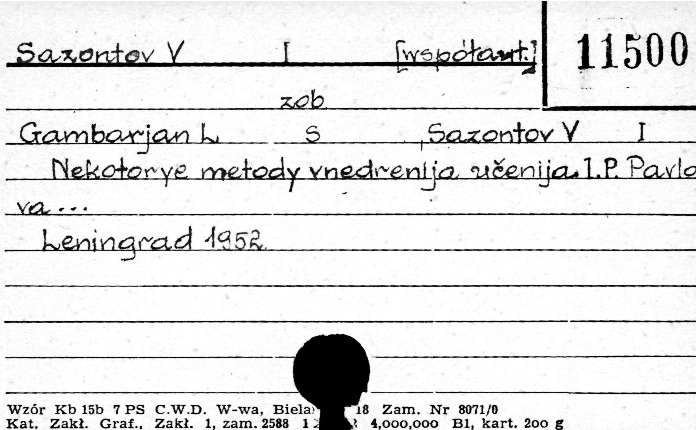 Sazontov V I [współaut.] 11500
zob
Gambarjan L S , Sazontov V I
Nekotorye metody vnedrenija učenija I.P. Pavlo
va...
Leningrad 1952
Wzór Kb 15b 7 PS C.W.D. W-wa, Biela 18 Zam. Nr 8071/0
Kat. Zakł. Graf., Zakł. 1, zam. 2588 4,000,000 B1, kart. 200 g